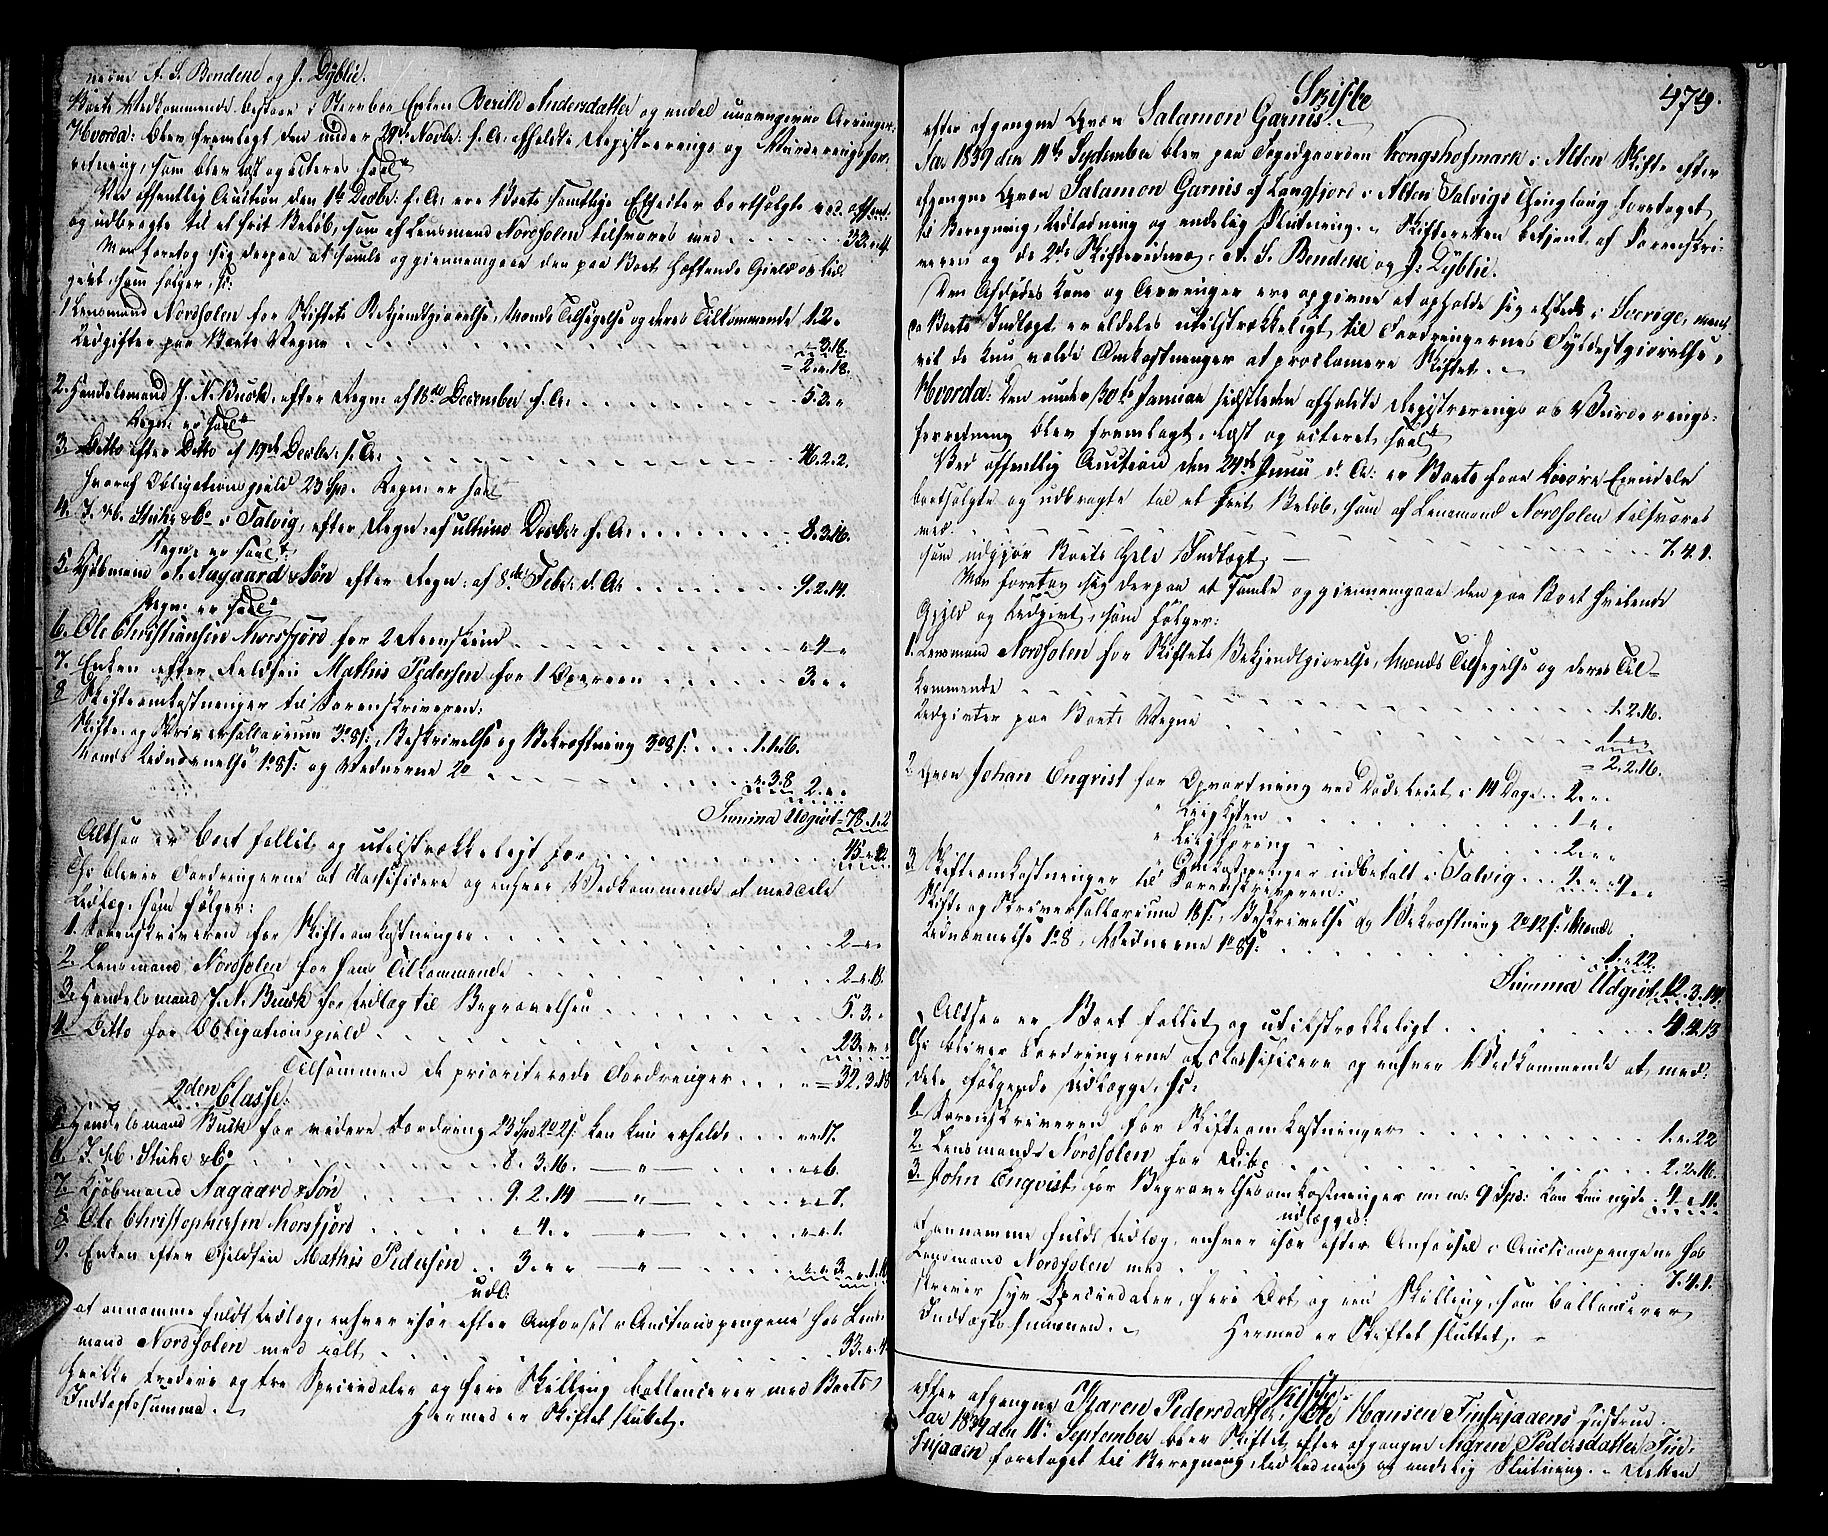 nerne A. S. Bendene og J. Dyblie.
Boets Vedkommende bestaar i Sterbboe Enken Berille Andersdatter og endel uangivne Arvinger.
Hvorda: blev fremlagt den under 29de Novbr: f. A. afholdte Registrerings og Vurderingsfor-
retning, som blev læst og acteres saal.
Ved offentlig Auction den 1te Decbr: f. A. ere Boets samtlige Effecter bortsolgte
og udbragte til et frit Beløb, som af Lensmand Nordholen tilsvares med 33. „ 4
Man foretog sig derpaa at samle og giennemgaae den paa Boet heftende Gield og Ud-
givt, som følger, sc:
1 Lensmand Nordholen for Skiftets Bekjendtgiørelse, Mænds Tilsigelse og deres Tilkommende 1. 2 „
Udgifter paa Boets Vegne „ 3. 18.
= 2. „. 18.
2. Handelsmand J. N. Buck, efter Regn: af 18de December f. A. 5. 3. „
Regn: er saal.
3. Ditto efter Ditto af 19de Decbr: f. A. 46. 2. 2.
hvoraf Obligationsgield 23 Spd. Regn: er saal.
4. J. & C. Stuhr & Co i Talvig, efter Regn: af ultimo Decbr: f. A. 8. 3. 16.
Regn: er saal:
5. Kjøbmand A. Aagaard & Søn efter Regn: af 8de Febr: d. A. 9. 2. 14.
Regn: er saal.
6. Ole Christiansen Norsfjord for 2 Reenskind „ 4 „
7. Enken efter Fieldfin Mathis Pedersen for 1 Oxereen 3. „ „
8 Skifteomkostninger til Sorenskriveren:
Skifte- og Skriversallarium 3 o 8 s:, Beskrivelse og Bekræftning 3 o 8 s: 1. 1. 16.
Mænds Udnævnelse 1 o 8 s: og Vidnerne 2 o „. 3. 8 2. „ „
Summa Udgivt = 78. 1. 2
Altsaa er Boet fallit og utilstrækkeligt for 45 „ 22
Thi blever Fordringerne at classificere og enhver Vedkommende at meddele
Udlæg, som følger:
1. Sorenskriveren for Skifteomkostninger 2 „ „
2. Lensmand Nordholen for hans Tilkommende 2 „. 18.
3. Handelsmand J. N. Buck for Udlæg til Begravelsen 5. 3. „
4. Ditto for Obligationsgield 23. „. „
Tilsammen de prioriterede Fordringer = 32. 3. 18
2den Classe:
5. Handelsmand Buck for videre Fordring 23 Spd 2 o 2 s: kan kun erholde „ „ 17.
6. J. & C. Stuhr & Co 8. 3. 16. — „ — „ „ 6.
7. Kjøbmand Aagaard & Søn 9. 2. 14 — „ — „ „ 7.
8. Ole Christophersen Norsfjord „ 4. „ — „ — „ „ 1.
9. Enken efter Fjeldfin Mathis Pedersen 3. „ „ — „ — „ „ 3. „. 1. 10
udl.
at annamme fuldt Udlæg, enhver især efter Anførsel i Auctionspengene hos Lens-
mand Nordholen med ialt 33. „. 4.
hvilke tredive og tre Speciedaler og fire Skilling ballancerer med Boets
Indtægtssumma.
Hermed er Skiftet sluttet.
474.
Skifte
efter afgangne Qvæn Salamon Garnis.
Aar 1839 den 11te September blev paa Fogedgaarden Kongshofmark i Alten Skifte efter
afgangne Qvæn Salamon Garnis af Langfjord i Alten Talvigs Thinglaug foretaget
til Beregning, Udlodning og endelig Slutning. Skifteretten betjent af Sorenskri-
veren og de 2de Skiftevidner A. S. Bendene og J: Dyblie.
Den Afdødes Kone og Arvinger ere opgivne at opholde sig etsteds i Sverige, men
da Boets Indtægt er aldeles utilstrækkeligt til Fordringernes Fyldestgiørelse,
vil de kun volde Omkostninger at proclamere Skiftet.
Hvorda: Den under 30te Januar sidstleden afholdte Registrerings og Vurderings-
forretning blev fremlagt, læst og acteret saal.
Ved offentlig Auction den 24de Junii d. A: er Boets faae Løsøre Eiendele
bortsolgte og udbragte til et frit Beløb, som af Lensmand Nordholen tilsvares
med 7. 4. 1.
som udgjør Boets hele Indtægt.
Man foretog sig derpaa at samle og giennemgaae den paa Boet hvilende
Gjeld og Udgivt, som følger:
1. Lensmand Nordholen for Skiftets Bekjendtgiørelse, Mænds Tilsigelse og deres Til-
kommende 1. 2. 16.
Udgivter paa Boets Vegne 1. „ „
= 2. 2. 16.
2. Qvæn Johan Enqvist for Opvartning ved Dødsleiet i 14 Dage 2. „ „
„ Liigkisten 1. „ „
„ Liigføring 2. „ „
„ Omkostninger udbetalt i Talvig 2. „ „ 9 „ „
3. Skifteomkostninger til Sorenskriveren:
Skifte og Skriversallarium 18 s:, Beskrivelse og Bekræftning 2 o 12 s: Mænds
Udnævnelse 1 o 8, Vidnerne 1 o 8 s: 1. „ 22
Summa Udgivt 12. 3. 14
Altsaa er Boet fallit og utilstrækkeligt 4. 4. 13
Thi bliver Fordringerne at classificere og enhver Vedkommende at med-
dele følgende Udlægge, sc:
1. Sorenskriveren for Skifteomkostninger 1. „. 22
2. Lensmands Nordholen for dito 2. 2. 16.
3. John Enqvist for Begravelsesomkostninger m: m: 9 Spd: kan kun nyde 4. „. 11.
udlægges:
at annamme fuldt Udlæg, enhver især efter Anførsel i Auctionspengene hos
Lensmand Nordholen med 7. 4. 1.
skriver syv Speciedaler, fire Ort og een Skilling, som ballancerer
Indtægts summen. Hermed er Skiftet sluttet.
Skifte
efter afgangne Karen Pedersdatter, Ole Hansen Finskjadens Hustrue.
Aar 1839 den 11te September blev Skiftet efter afgangne Karen Pedersdatter Fin-
skjaden foretaget til Beregning, Udlodning og endelig Slutning. Retten